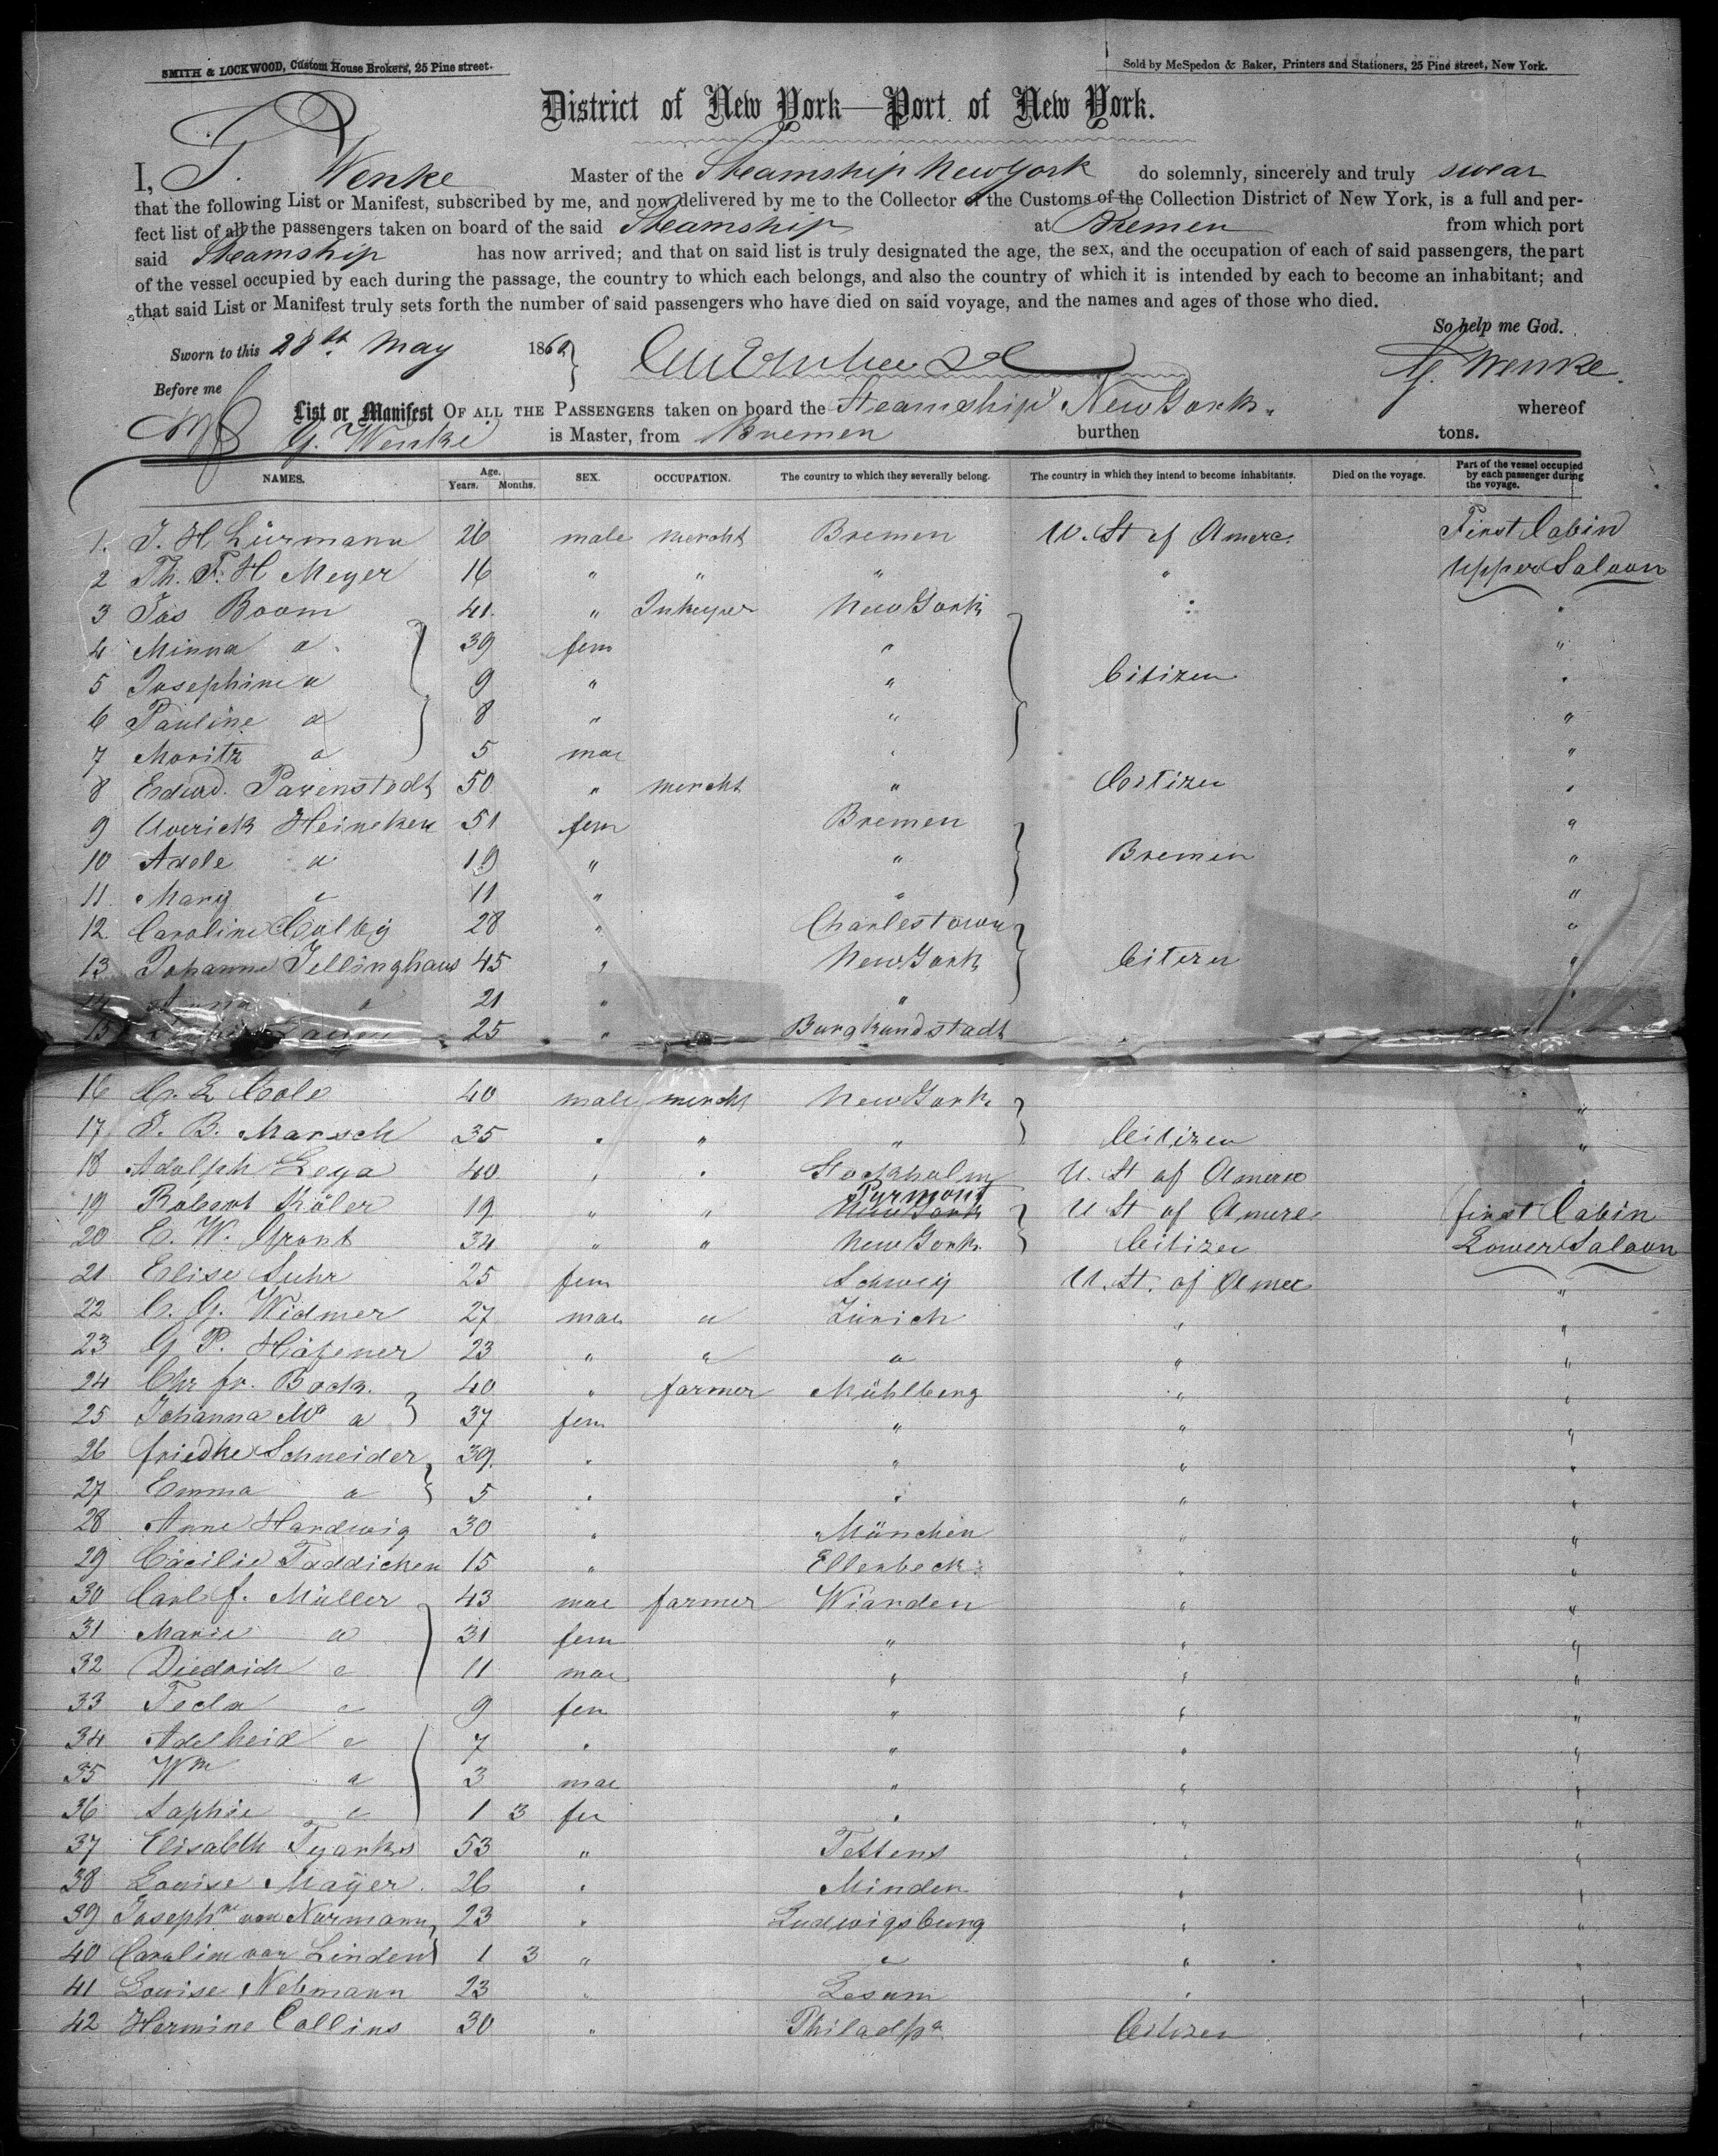 SMITH & LOCKWOOD, Custom House Brokers, 25 Pine street.
Sold by McSpedon & Baker, Printers and Stationers, 25 Pine street, New York.
District of New York—Port of New York.
I, Wenke Master of the Steamship New York do solemnly, sincerely and truly swear
that the following List or Manifest, subscribed by me, and now delivered by me to the Collector of the Customs of the Collection District of New York, is a full and per-
fect list of all the passengers taken on board of the said Steamship at Bremen from which port
said Steamship has now arrived; and that on said list is truly designated the age, the sex, and the occupation of each of said passengers, the part
of the vessel occupied by each during the passage, the country to which each belongs, and also the country of which it is intended by each to become an inhabitant; and
that said List or Manifest truly sets forth the number of said passengers who have died on said voyage, and the names and ages of those who died.
So help me God.
Sworn to this 28th May 186
G. Wenke
Before me
List or Manifest OF ALL THE PASSENGERS taken on board the Steamship New York whereof
G. Wenke is Master, from Bremen burthen tons.
NAMES. Age. Years. Months. SEX. OCCUPATION. The country to which they severally belong. The country in which they intend to become inhabitants. Died on the voyage. Part of the vessel occupied by each passenger during the voyage.
1. J. H Lürmann 26 male mercht Bremen U. St of Amerc. First Cabin
2 Th. F. H Meyer 16 " " " " Upper Saloon
3 Jos Boom 41 " Inkeeper New York " "
4 Minna a 39 fem " "
5 Josephine a 9 " " Citizen "
6 Pauline a 8 " " "
7 Moritz a 5 mae " "
8 Edwd. Pavenstedt 50 " mercht " Citizen "
9 Heineken 51 fem Bremen "
10 Adele a 19 " " Bremen "
11 Mary a 11 " " "
12 Caroline Colby 28 " Charlestown "
13 Johanne Tellinghaus 45 " New York Citizen "
14 a 21 " " "
15 25 " Burgkundstadt
16 Cole 40 male mercht New York "
17 B. Marsch 35 " " " Citizen "
18 Adolph Leya 40 " " Stockholm U. St of Amerc "
19 Robert Köler 19 " " New York Pyrmont U St of Amerc first Cabin
20 E. W. Grant 34 " " New York Citizen Lower Saloon
21 Elise Suhr 25 fem Schweiz U. St. of Amer "
22 C. G. Widmer 27 mae a Zürich " "
23 G P. Häfener 23 " a a " "
24 Chr fr. Bock 40 " farmer Mühlberg " "
25 Johanna Ma a 37 fem " " "
26 friedke Schneider 39 " " " "
27 Emma a 5 " " " "
28 Anne Hardwig 30 " München " "
29 Cäcilie Taddicken 15 " Ellenbeck " "
30 Carl f. Müller 43 mae farmer Wiarden " "
31 Marie a 31 fem " " "
32 Diedrich a 11 mae " " "
33 Tecla a 9 fem " " "
34 Adelheid a 7 " " " "
35 Wm a 3 mae " " "
36 Sophie a 1 3 fem " " "
37 Elisabeth Tyarks 53 " Tettens " "
38 Louise Mayer 26 " Minden " "
39 Josephne von Normann 23 " Ludwigsburg " "
40 Caroline von Linden 1 3 " a " "
41 Louise Nebmann 23 " Lesum " "
42 Hermine Collins 30 " Philadpa Citizen "